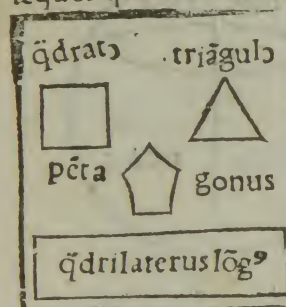 q̈dratꝯ triãgulꝯ
pẽta gonus
q̈drilaterus lõgꝰ